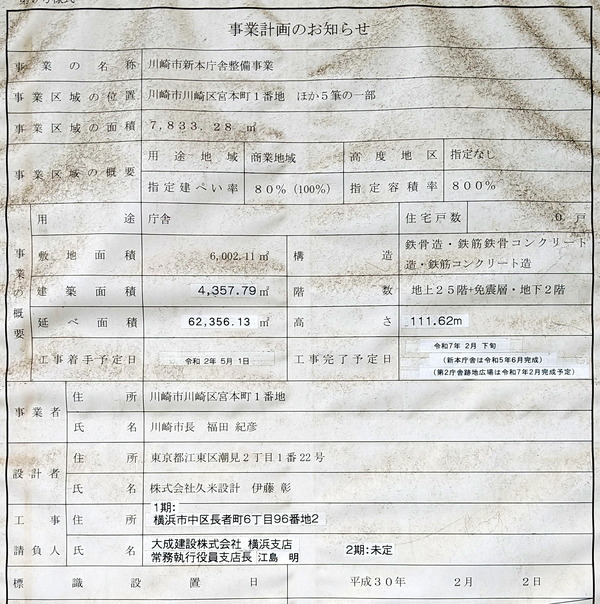 事業計画のお知らせ
事業の名称 川崎市新本庁舎整備事業
事業区域の位置 川崎市川崎区宮本町1番地 ほか5筆の一部
事業区域の面積 7,833.28 ㎡
事業区域の概要 用途地域 商業地域 高度地区 指定なし
指定建ぺい率 80% (100%) 指定容積率 800%
事業の概要
用途 庁舎 住宅戸数 0 戸
敷地面積 6,002.11㎡ 構造 鉄骨造・鉄筋鉄骨コンクリート
造・鉄筋コンクリート造
建築面積 4,357.79㎡ 階数 地上25階+免震層・地下2階
延べ面積 62,356.13 ㎡ 高さ 111.62m
工事着手予定日 令和 2年 5月 1日 工事完了予定日 令和7年 2月 下旬
(新本庁舎は令和5年6月完成)
(第2庁舎跡地広場は令和7年2月完成予定)
事業者 住所 川崎市川崎区宮本町1番地
氏名 川崎市長 福田 紀彦
設計者 住所 東京都江東区潮見2丁目1番22号
氏名 株式会社久米設計 伊藤 彰
工事請負人 住所 1期:
横浜市中区長者町6丁目96番地2
氏名 大成建設株式会社 横浜支店 2期:未定
常務執行役員支店長 江島 明
標識設置日 平成30年 2月 2日